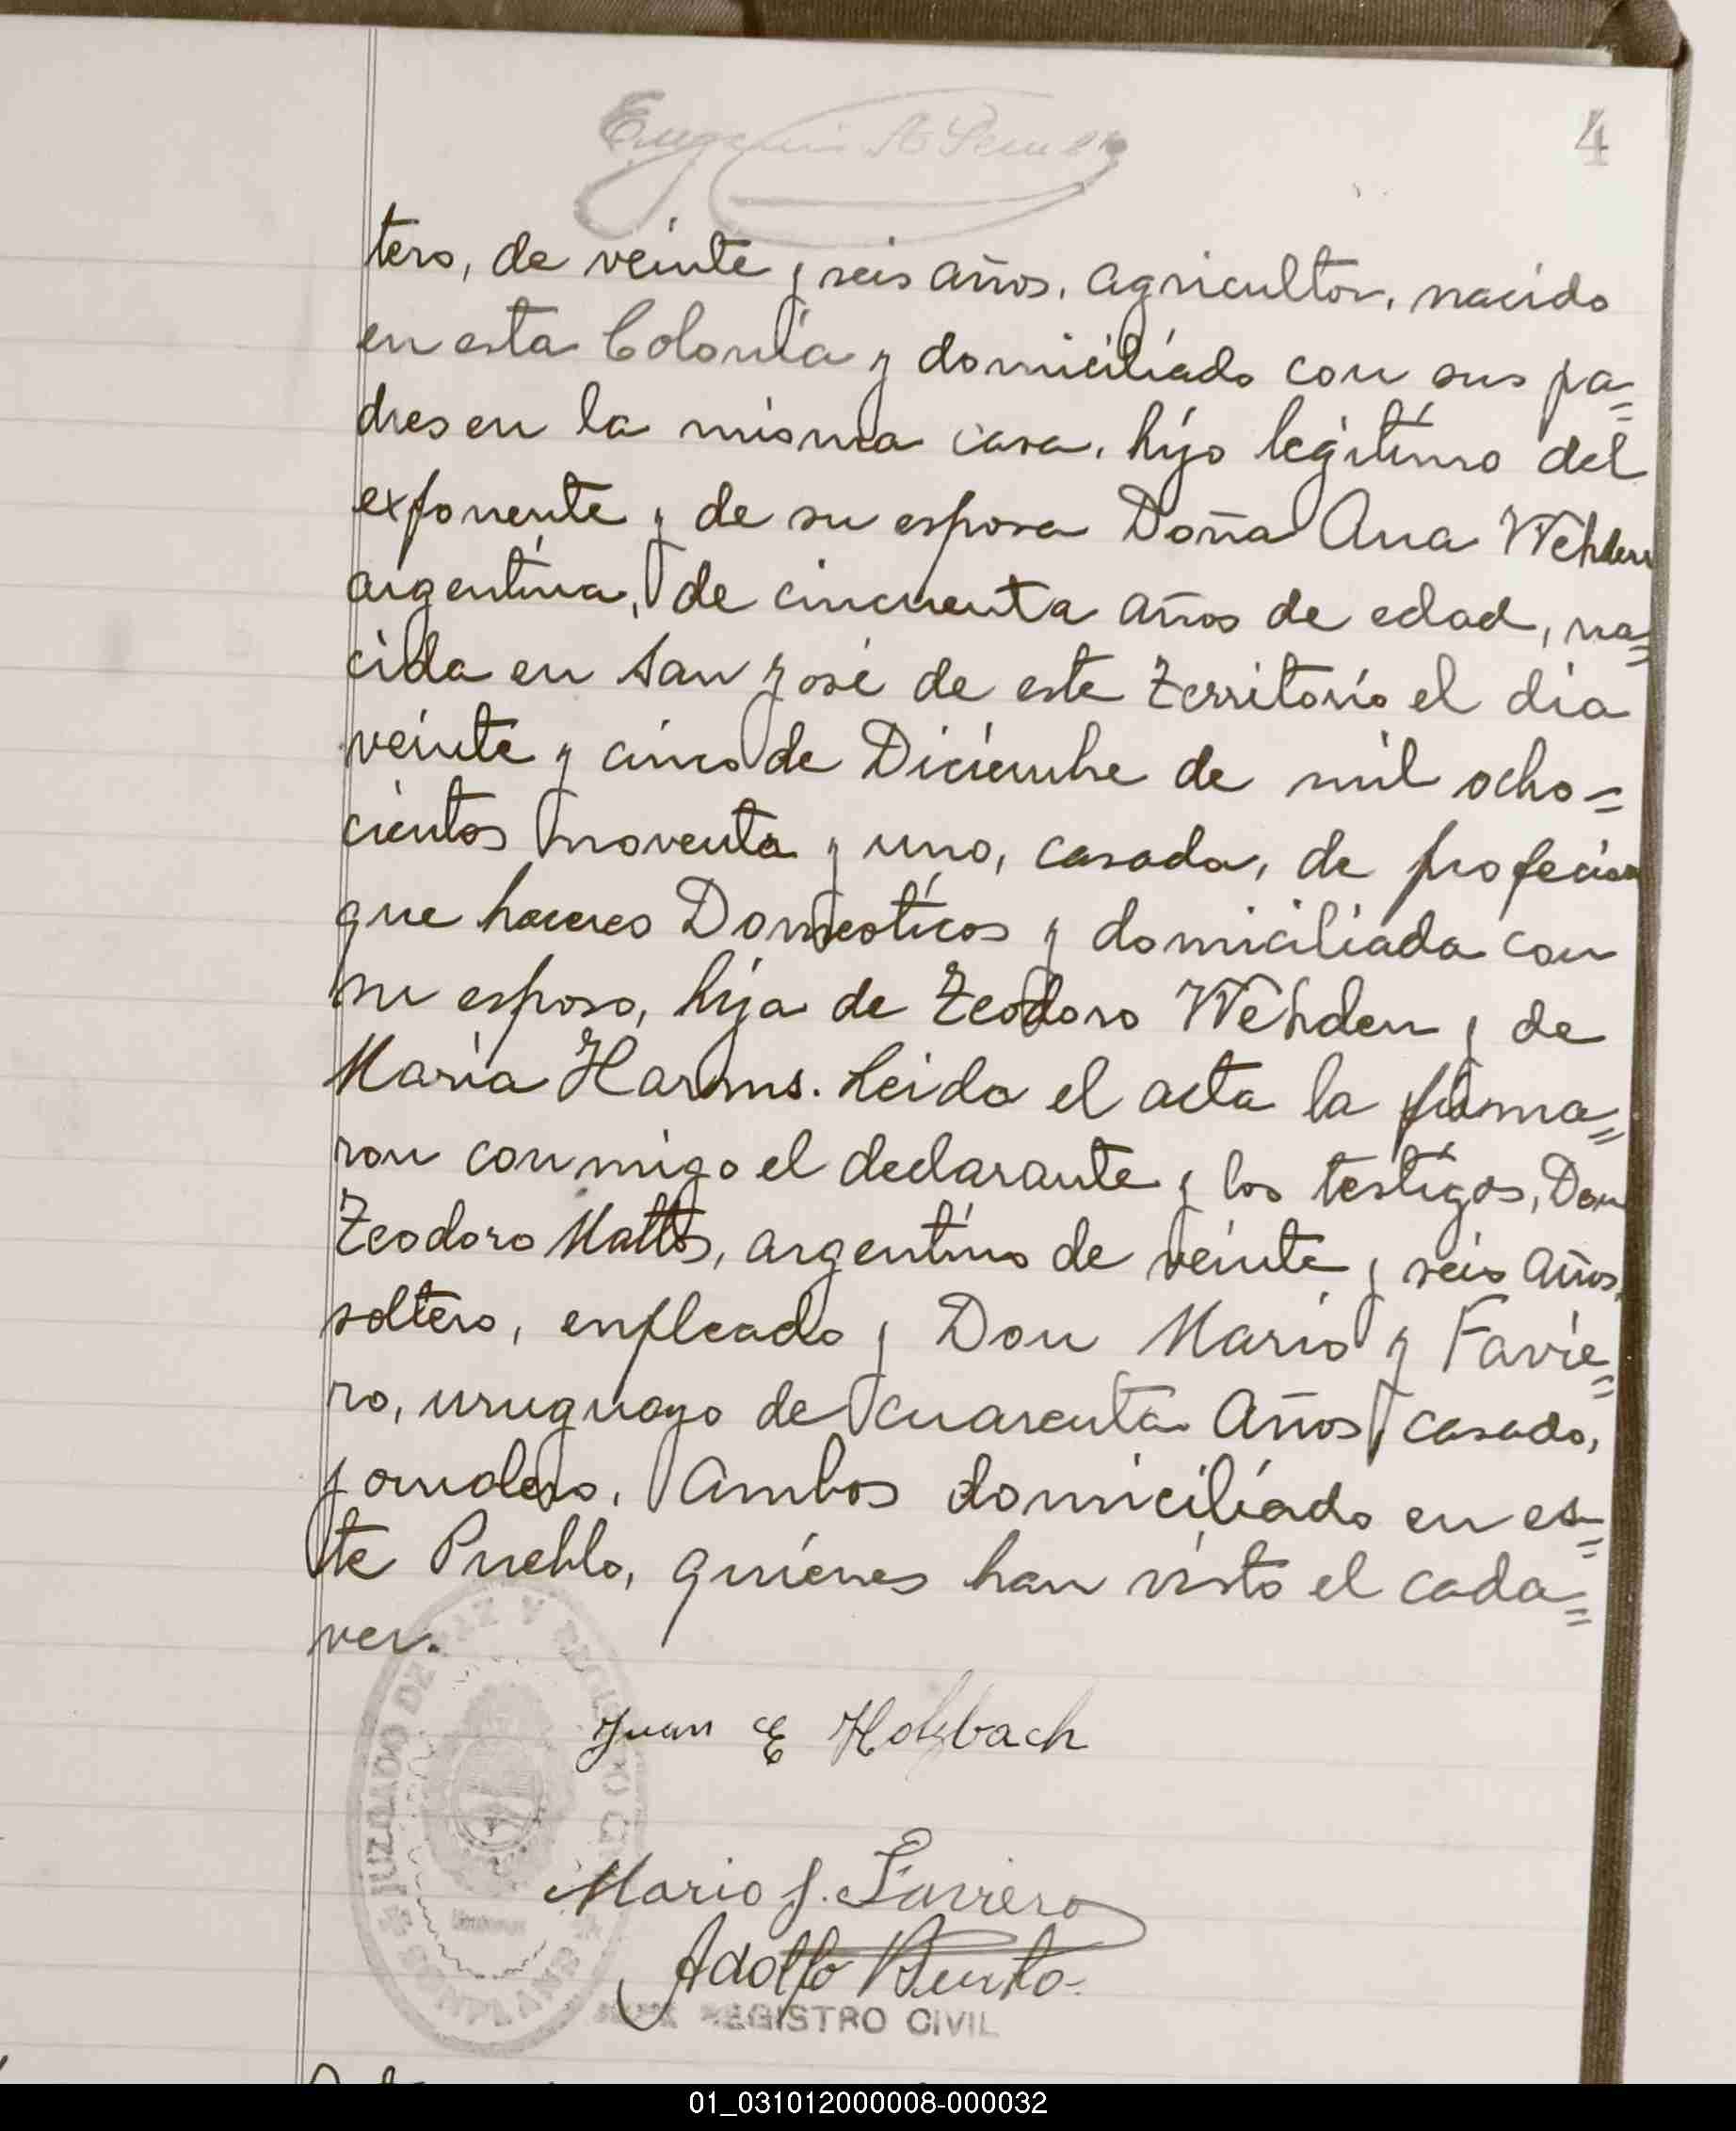 4
tero, de veinte y seis años, agricultor, nacido
en esta Colonia y domiciliado con sus pa=
dres en la misma casa, hijo legítimo del
exponente y de su esposa Doña Ana Wehden
argentina, de cincuenta años de edad, na=
cida en San José de este Territorio el dia
veinte y cinco de Diciembre de mil ocho=
cientos noventa y uno, casada, de profecion
que haceres Domesticos y domiciliada con
su esposo, hija de Teodoro Wehden y de
Maria Harms. Leida el acta la firma=
ron conmigo el declarante y los testigos, Don
Teodoro Matts, argentino de veinte y seis años,
soltero, enpleado y Don Mario J Favie=
ro, uruguayo de cuarenta años casado,
jornalero, ambos domiciliado en es=
te Pueblo, quienes han visto el cada=
ver.
Juan E Holzbach
Mario J. Faviero
Adolfo
JUZGADO DE PAZ Y REGISTRO CIVIL
REGISTRO CIVIL
01_031012000008-000032